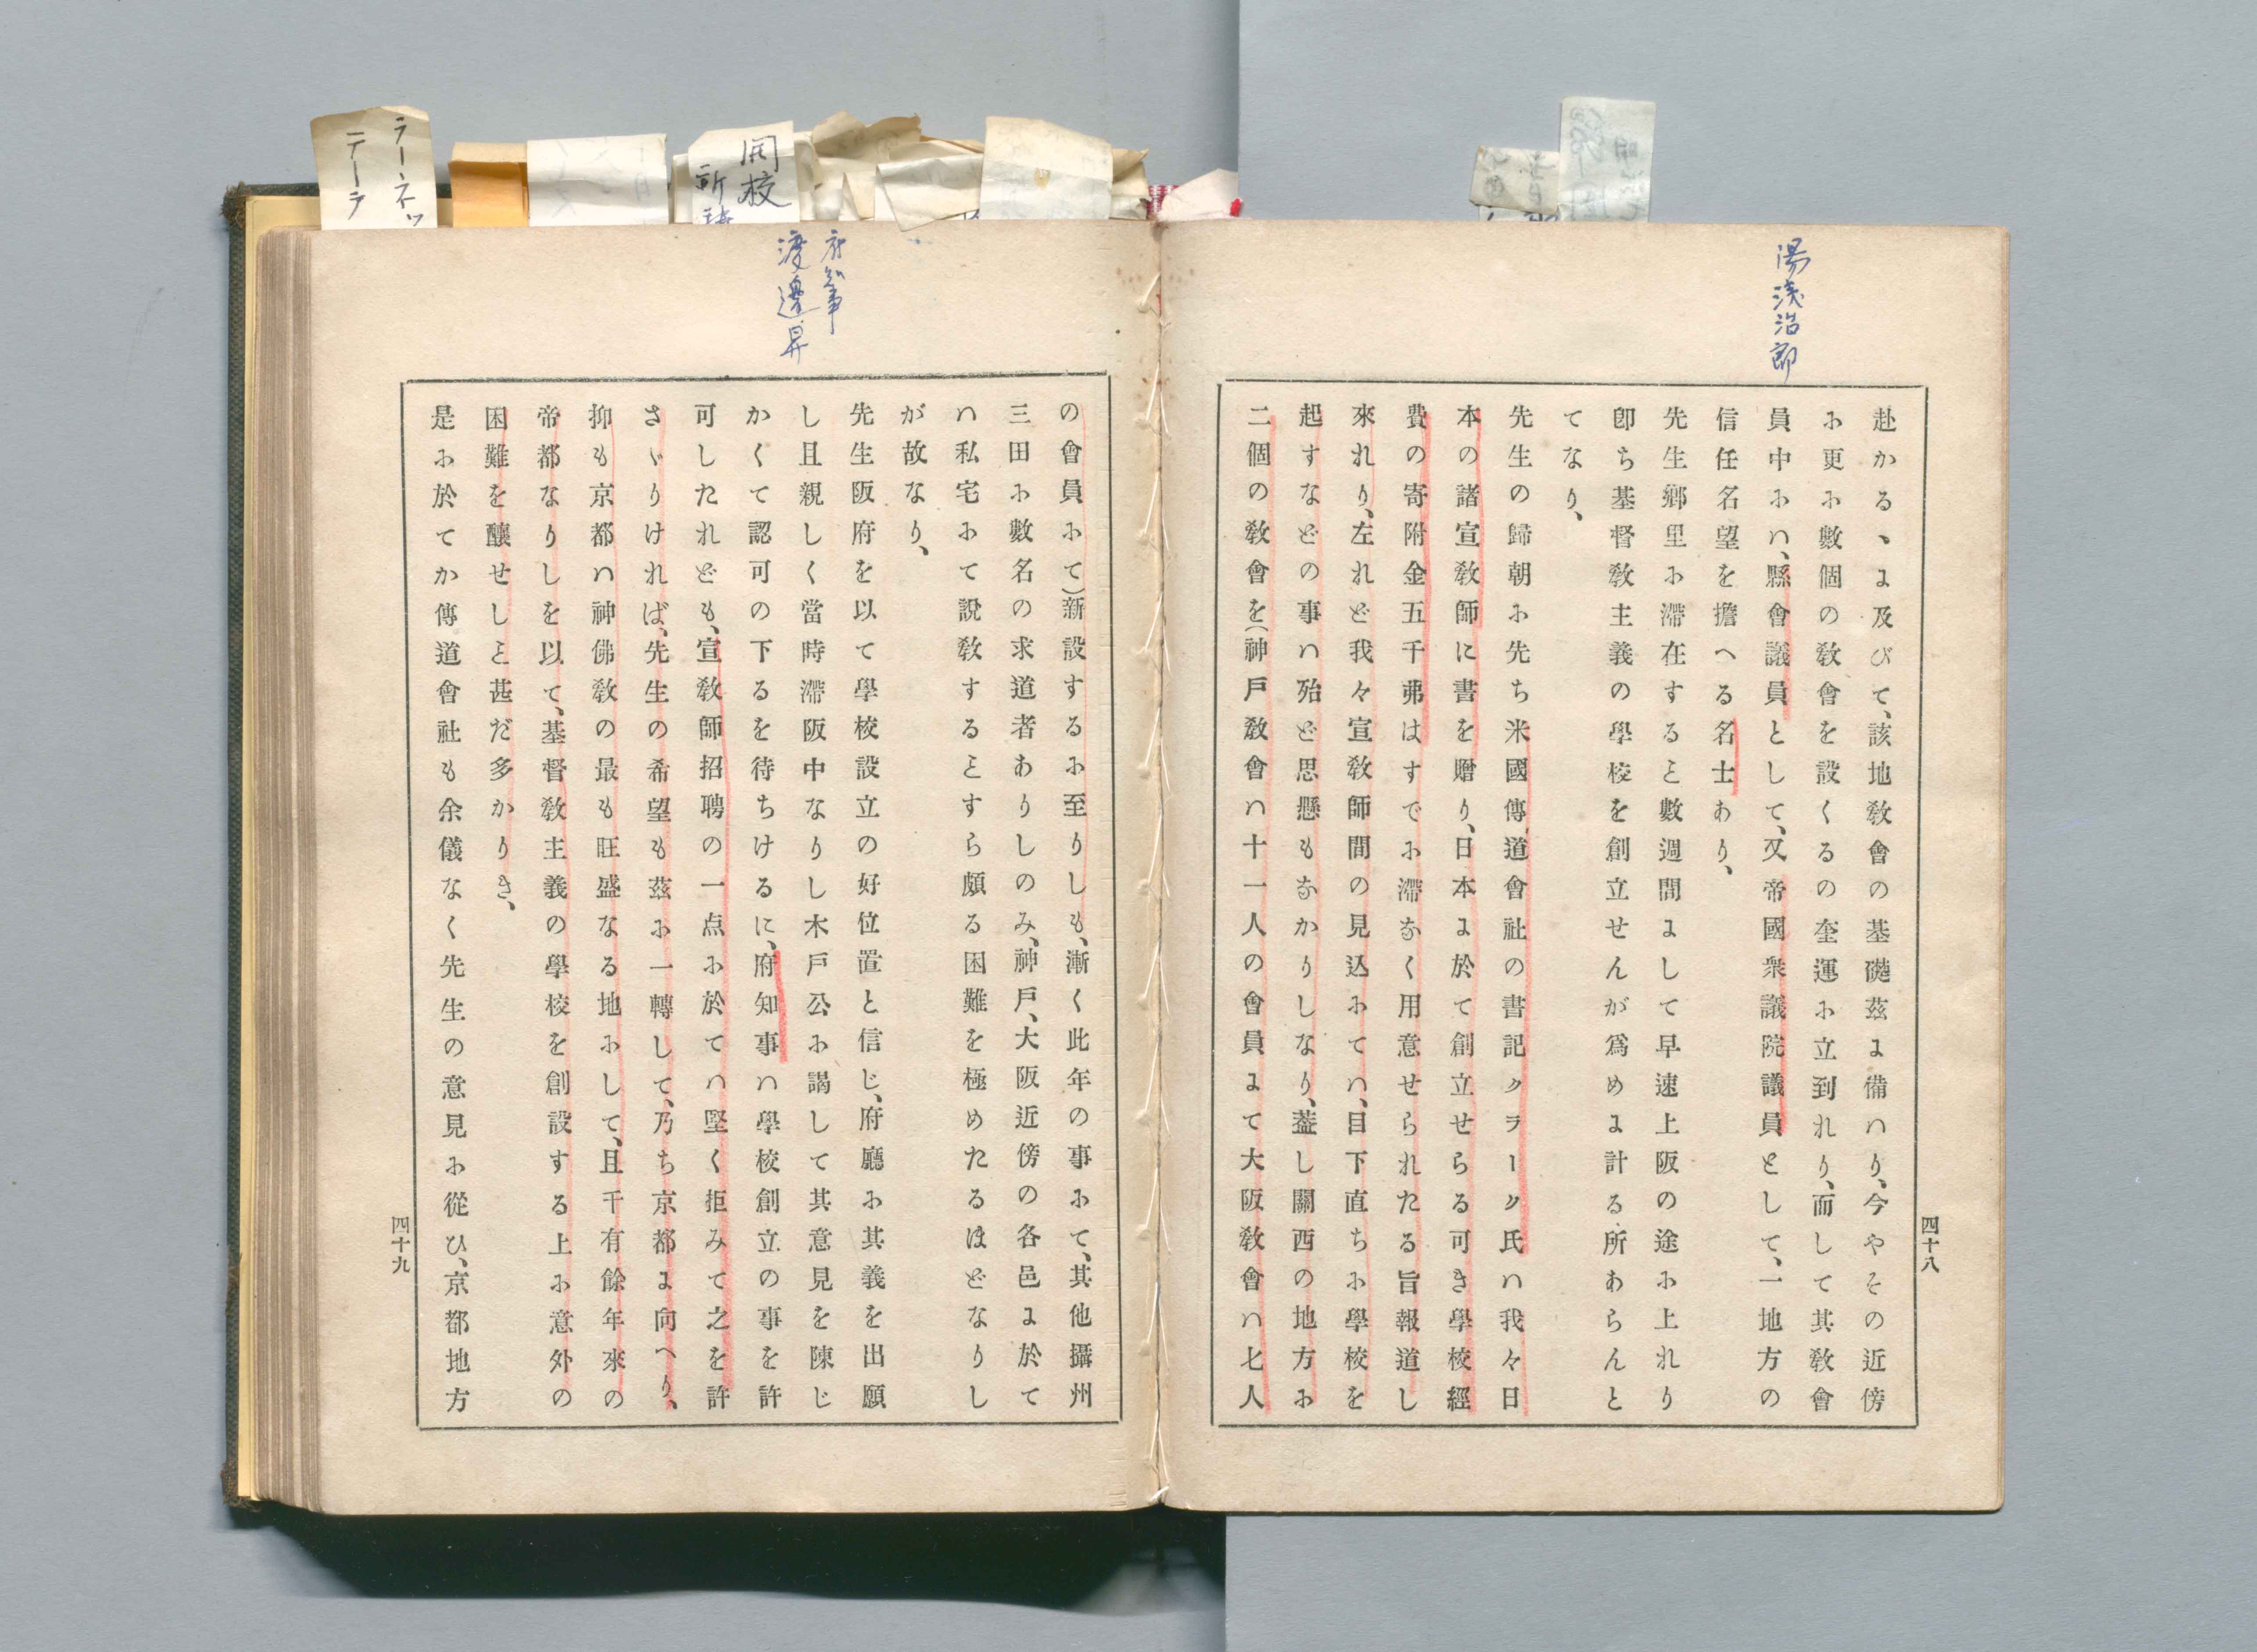 湯浅治郎
赴かるゝに及びて、該地敎會の基礎茲に備ハり、今やその近傍
に更に數個の敎會を設くるの奎運に立到れり、而して其敎會
員中にハ、縣會議員として、又帝國衆議院議員として、一地方の
信任名望を擔へる名士あり、
先生鄕里に滯在すること數週間にして早速上阪の途に上れり
卽ち基督敎主義の學校を創立せんが爲めに計る所あらんと
てなり、
先生の歸朝に先ち米國傳道會社の書記クラーク氏ハ我々日
本の諸宣敎師に書を贈り、日本に於て創立せらる可き學校經
費の寄附金五千弗はすでに滯なく用意せられたる旨報道し
來れり、左れど我々宣敎師間の見込にてハ、目下直ちに學校を
起すなどの事ハ殆ど思懸もなかりしなり、蓋し關西の地方に
二個の敎會を(神戶敎會ハ十一人の會員にて大阪敎會ハ七人
四十八
府知事
渡邊昇
の會員にて)新設するに至りしも、漸く此年の事にて、其他攝州
三田に數名の求道者ありしのみ、神戶、大阪近傍の各邑に於て
ハ私宅にて說敎することすら頗る困難を極めたるほどなりし
が故なり、
先生阪府を以て學校設立の好位置と信じ、府廳に其義を出願
し且親しく當時滯阪中なりし木戶公に謁して其意見を陳じ
かくて認可の下るを待ちけるに、府知事ハ學校創立の事を許
可したれども、宣敎師招聘の一点に於てハ堅く拒みて之を許
さゞりければ、先生の希望も茲に一轉して、乃ち京都に向へり、
抑も京都ハ神佛敎の最も旺盛なる地にして、且千有餘年來の
帝都なりしを以て、基督敎主義の學校を創設する上に意外の
困難を釀せしこと甚だ多かりき、
是に於てか傳道會社も余儀なく先生の意見に從ひ、京都地方
四十九
開校
ラーネッ
テーラ